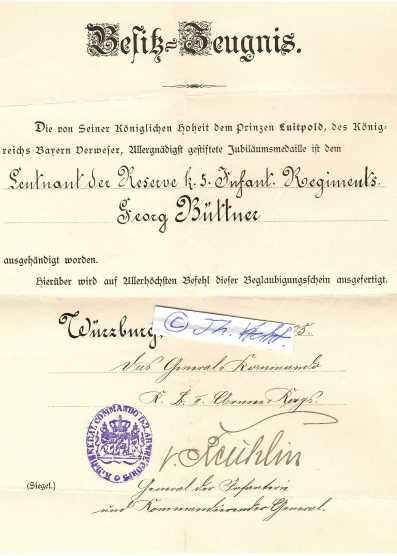 Besitz=Zeugnis.
Die von Seiner Königlichen Hoheit dem Prinzen Luitpold, des König-
reichs Bayern Verweser, Allergnädigst gestiftete Jubiläumsmedaille ist dem
Leutnant der Reserve k. 5. Infant. Regiments.
Georg Büttner
ausgehändigt worden.
Hierüber wird auf Allerhöchsten Befehl dieser Beglaubigungsschein ausgefertigt.
Würzburg, 5.
©
Das General-Kommando
K. B. Armee-Korps
(Siegel.)
General der Infanterie
und Kommandierender General.